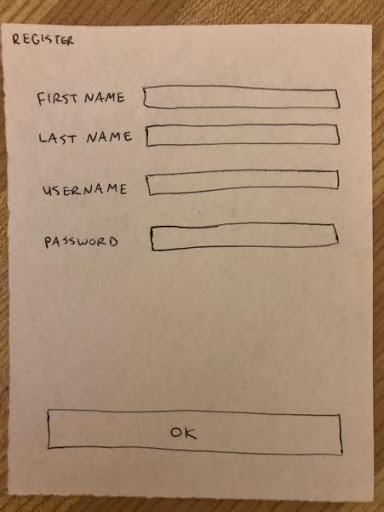 REGISTER
FIRST NAME
LAST NAME
USERNAME
PASSWORD
OK